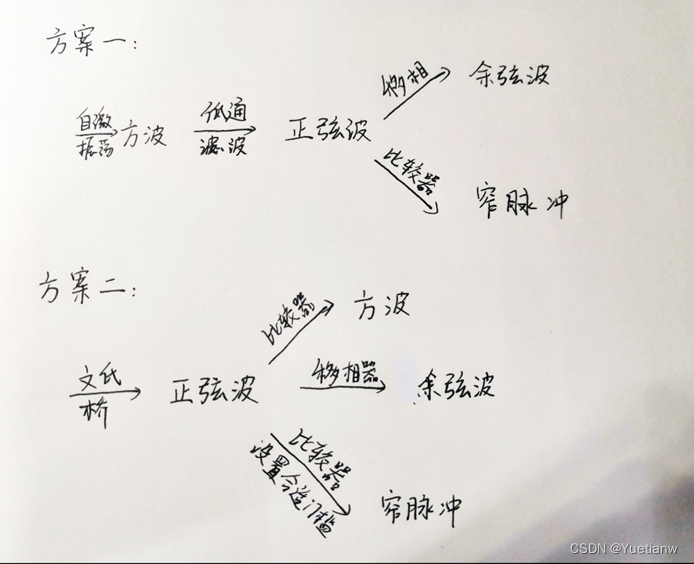 方案一:
自激
振荡
方波
低通
滤波
正弦波
移相
余弦波
比较器
窄脉冲
方案二:
文氏
桥
正弦波
比较器
方波
移相器
余弦波
比较器
设置合适门槛
窄脉冲
CSDN @Yuetianw